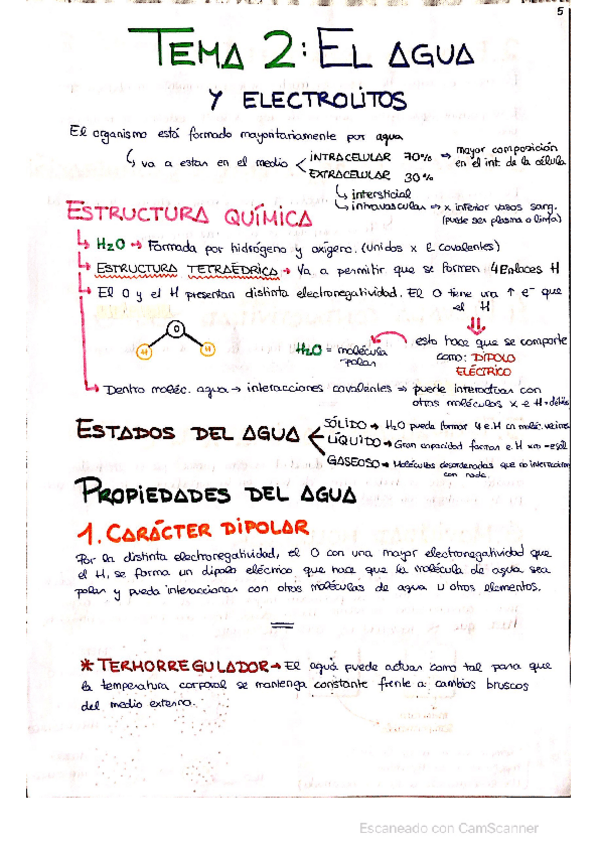 5
TEMA 2: EL AGUA
Y ELECTROLITOS
El organismo está formado mayoritariamente por agua
↳ va a estar en el medio < INTRACELULAR 70% → mayor composición
en el int. de la célula
EXTRACELULAR 30%
↳ intersticial
↳ intravascular → x inferior vasos sang.
(puede ser plasma o linfa)
ESTRUCTURA QUÍMICA
↳ H2O → Formada por hidrógeno y oxígeno. (Unidos x E covalentes)
↳ ESTRUCTURA TETRAÉDRICA → Va a permitir que se formen 4 Enlaces H
↳ El O y el H presentan distinta electronegatividad. El O tiene una ↑ e⁻ que
el H
⇓
esto hace que se comporte
como: DIPOLO
ELÉCTRICO
H2O = molécula
polar
O
H H
↳ Dentro moléc. agua → interacciones covalentes → puede interactuar con
otras moléculas x e H
ESTADOS DEL AGUA <
SÓLIDO → H2O puede formar 4 e.H con moléc. vecinas
LÍQUIDO → Gran capacidad formar e.H
GASEOSO → Moléculas desordenadas que no interaccionan
con nada.
PROPIEDADES DEL AGUA
1. CARÁCTER DIPOLAR
Por la distinta electronegatividad, el O con una mayor electronegatividad que
el H, se forma un dipolo eléctrico que hace que la molécula de agua sea
polar y pueda interaccionar con otras moléculas de agua u otros elementos.
* TERMORREGULADOR → El agua puede actuar como tal para que
la temperatura corporal se mantenga constante frente a cambios bruscos
del medio externo.
Escaneado con CamScanner